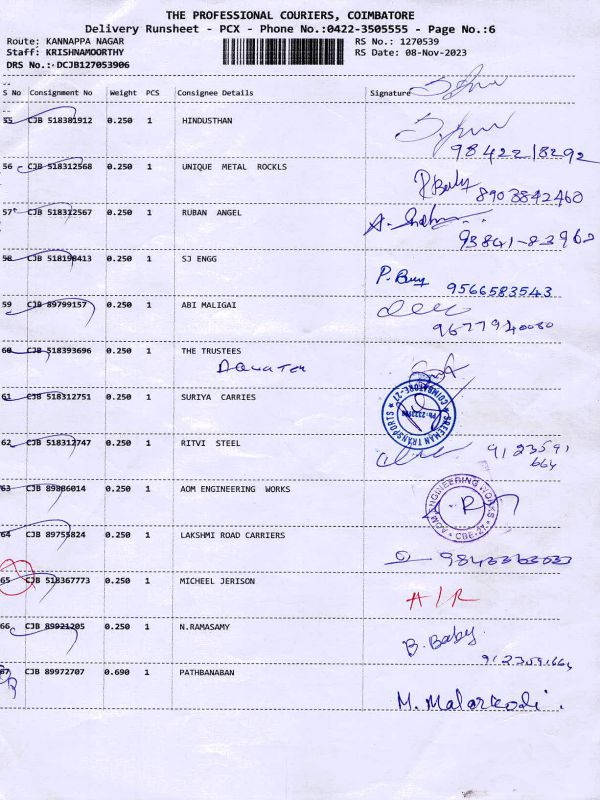 THE PROFESSIONAL COURIERS, COIMBATORE
Delivery Runsheet - PCX - Phone No.:0422-3505555 - Page No.:6
Route: KANNAPPA NAGAR RS No.: 1270539
Staff: KRISHNAMOORTHY RS Date: 08-Nov-2023
DRS No.: DCJB127053906
S No Consignment No Weight PCS Consignee Details Signature
55 CJB 518381912 0.250 1 HINDUSTHAN
9842218292
56 CJB 518312568 0.250 1 UNIQUE METAL ROCKLS
8903842460
57 CJB 518312567 0.250 1 RUBAN ANGEL
58 CJB 518198413 0.250 1 SJ ENGG
9566583543
59 CJB 89799157 0.250 1 ABI MALIGAI
60 CJB 518393696 0.250 1 THE TRUSTEES
61 CJB 518312751 0.250 1 SURIYA CARRIES
SREEMAN TRANSPORTS COIMBATORE-27
62 CJB 518312747 0.250 1 RITVI STEEL
9123591
664
63 CJB 89886014 0.250 1 AOM ENGINEERING WORKS
AOM ENGINEERING WORKS CBE-27
64 CJB 89755824 0.250 1 LAKSHMI ROAD CARRIERS
65 CJB 518367773 0.250 1 MICHEEL JERISON
A/R
66 CJB 89921205 0.250 1 N.RAMASAMY
B. Baby
9123591664
67 CJB 89972707 0.690 1 PATHBANABAN
M. Malarkodi.